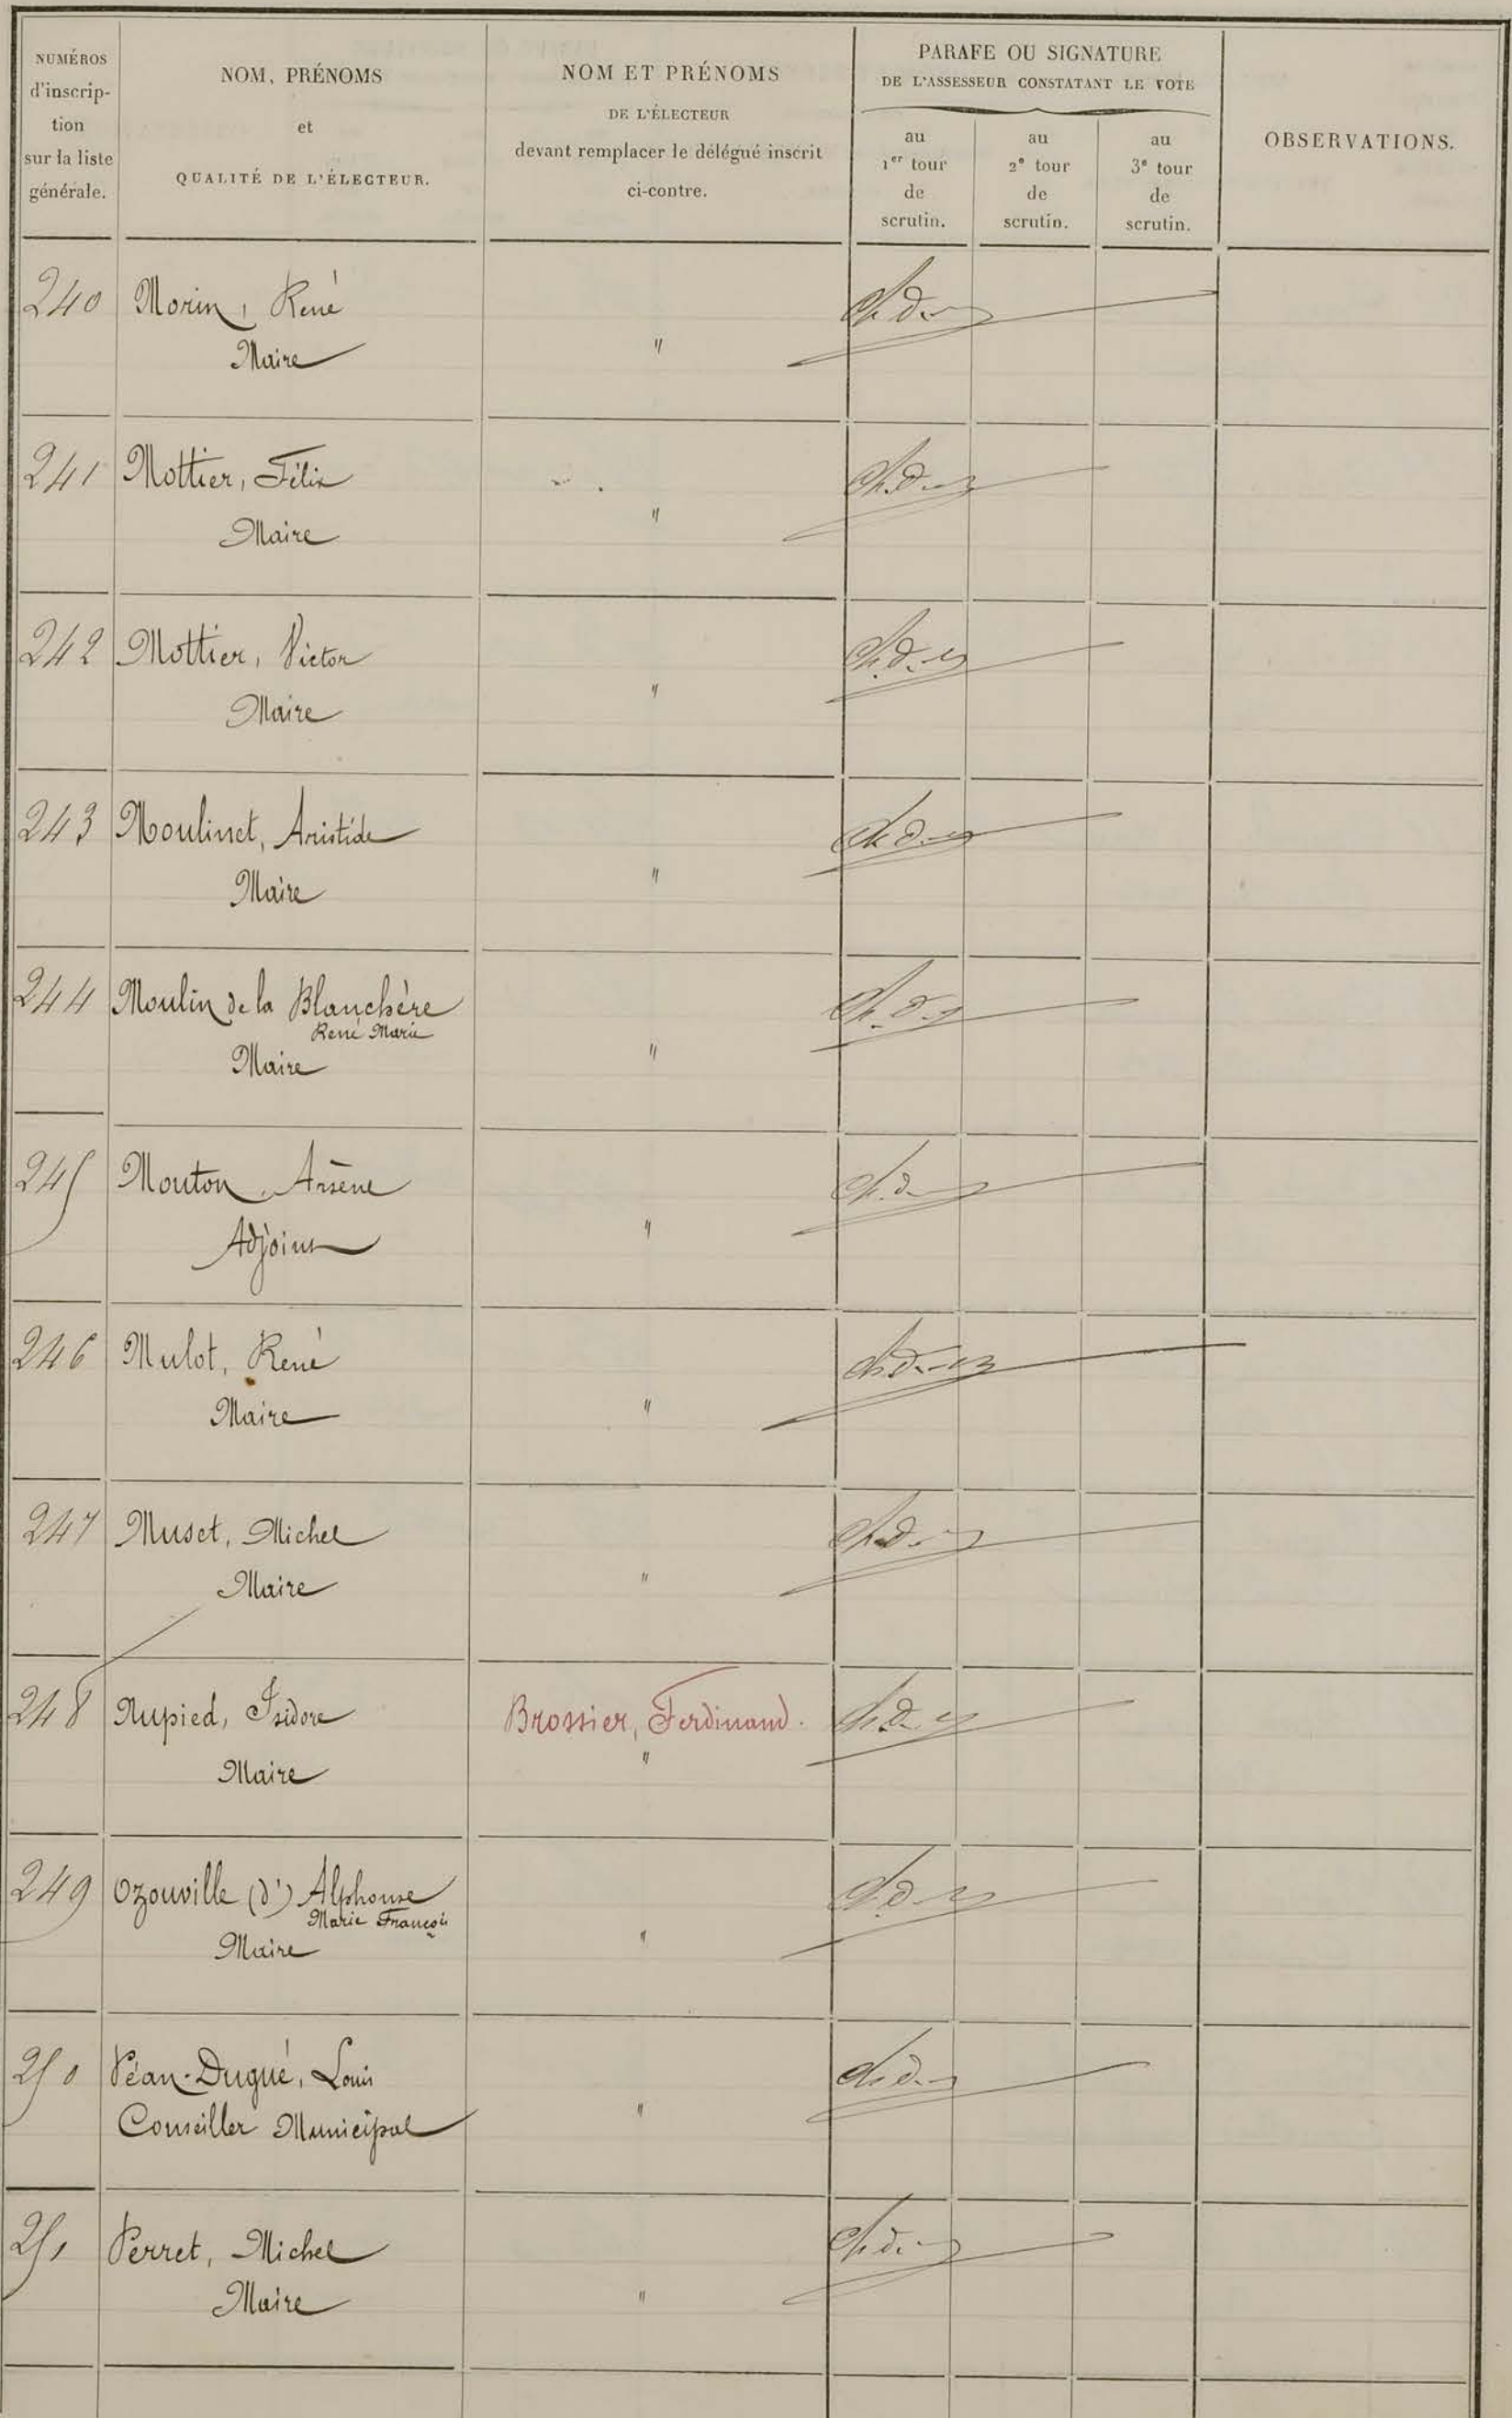 NUMÉROS
d'inscrip-
tion
sur la liste
générale.
NOM, PRÉNOMS
et
QUALITÉ DE L'ÉLECTEUR.
NOM ET PRÉNOMS
DE L'ÉLECTEUR
devant remplacer le délégué inscrit
ci-contre.
PARAFE OU SIGNATURE
DE L'ASSESSEUR CONSTATANT LE VOTE
au
1er tour
de
scrutin.
au
2e tour
de
scrutin.
au
3e tour
de
scrutin.
OBSERVATIONS.
240 Morin, René
Maire "
241 Mottier, Félix
Maire "
242 Mottier, Victor
Maire "
243 Moulinet, Aristide
Maire "
244 Moulin de la Blanchère
René Marie
Maire "
245 Mouton, Arsène
Adjoint "
246 Mulot, René
Maire "
247 Muset, Michel
Maire "
248 Nupied, Isidore Brossier, Ferdinand.
Maire "
249 Ozouville (d') Alphonse
Marie François
Maire "
250 Péan-Dugué, Louis
Conseiller Municipal "
251 Perret, Michel
Maire "